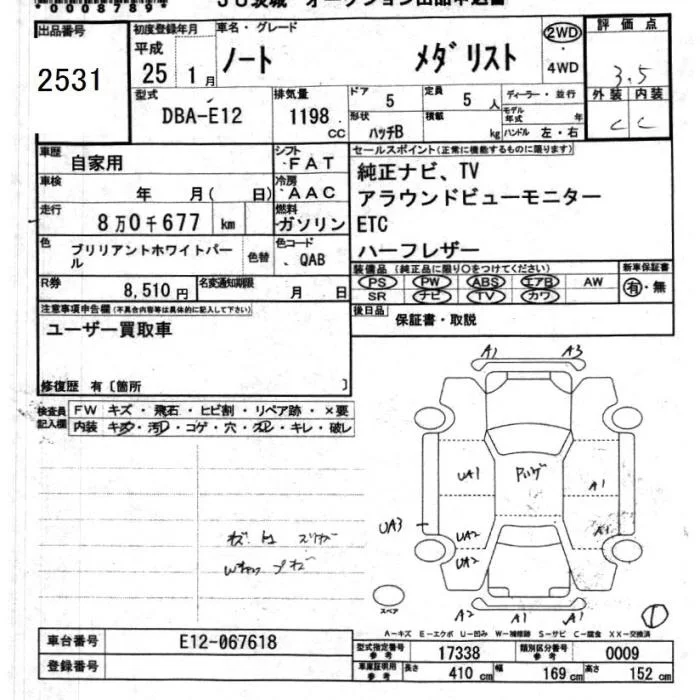 0008789
JU茨城 オークション出品申込書
出品番号
2531
初度登録年月
平成
25 1月
車名・グレード
ノート メダリスト
2WD
・
4WD
評価点
3.5
外装 内装
C C
型式
DBA-E12
排気量
1198 cc
ドア 5
定員 5人
形状 ハッチB
積載 kg
ディーラー・並行
モデル年式 年
ハンドル 左・右
車歴 自家用
シフト FAT
車検 年 月( 日)
冷房 AAC
走行 8万0千677 km
燃料 ガソリン
色 ブリリアントホワイトパール
色替
色コード 、QAB
R券 8,510円
名変通知期限 月 日
セールスポイント(正常に機能するものに限ります)
純正ナビ、TV
アラウンドビューモニター
ETC
ハーフレザー
装備品 (純正品に限り○をつけてください)
新車保証書
PS PW ABS エアB AW
有・無
SR ナビ TV カワ
後日品 保証書・取説
注意事項申告欄(不具合内容等は具体的に記入して下さい)
ユーザー買取車
修復歴 有〔箇所 〕
検査員記入欄
FW キズ・飛石・ヒビ割・リペア跡・×要
内装 キズ・汚レ・コゲ・穴・スレ・キレ・破レ
A1 A3
UA1
A1
UA3
UA2
UA2
A1
A2 A1 A1
スペア
1
A-キズ E-エクボ U-凹み W-補修跡 S-サビ C-腐食 XX-交換済
車台番号 E12-067618
登録番号
型式指定番号 参考 17338
類別区分番号 参考 0009
車庫証明用 参考 長さ 410 cm 幅 169 cm 高さ 152 cm